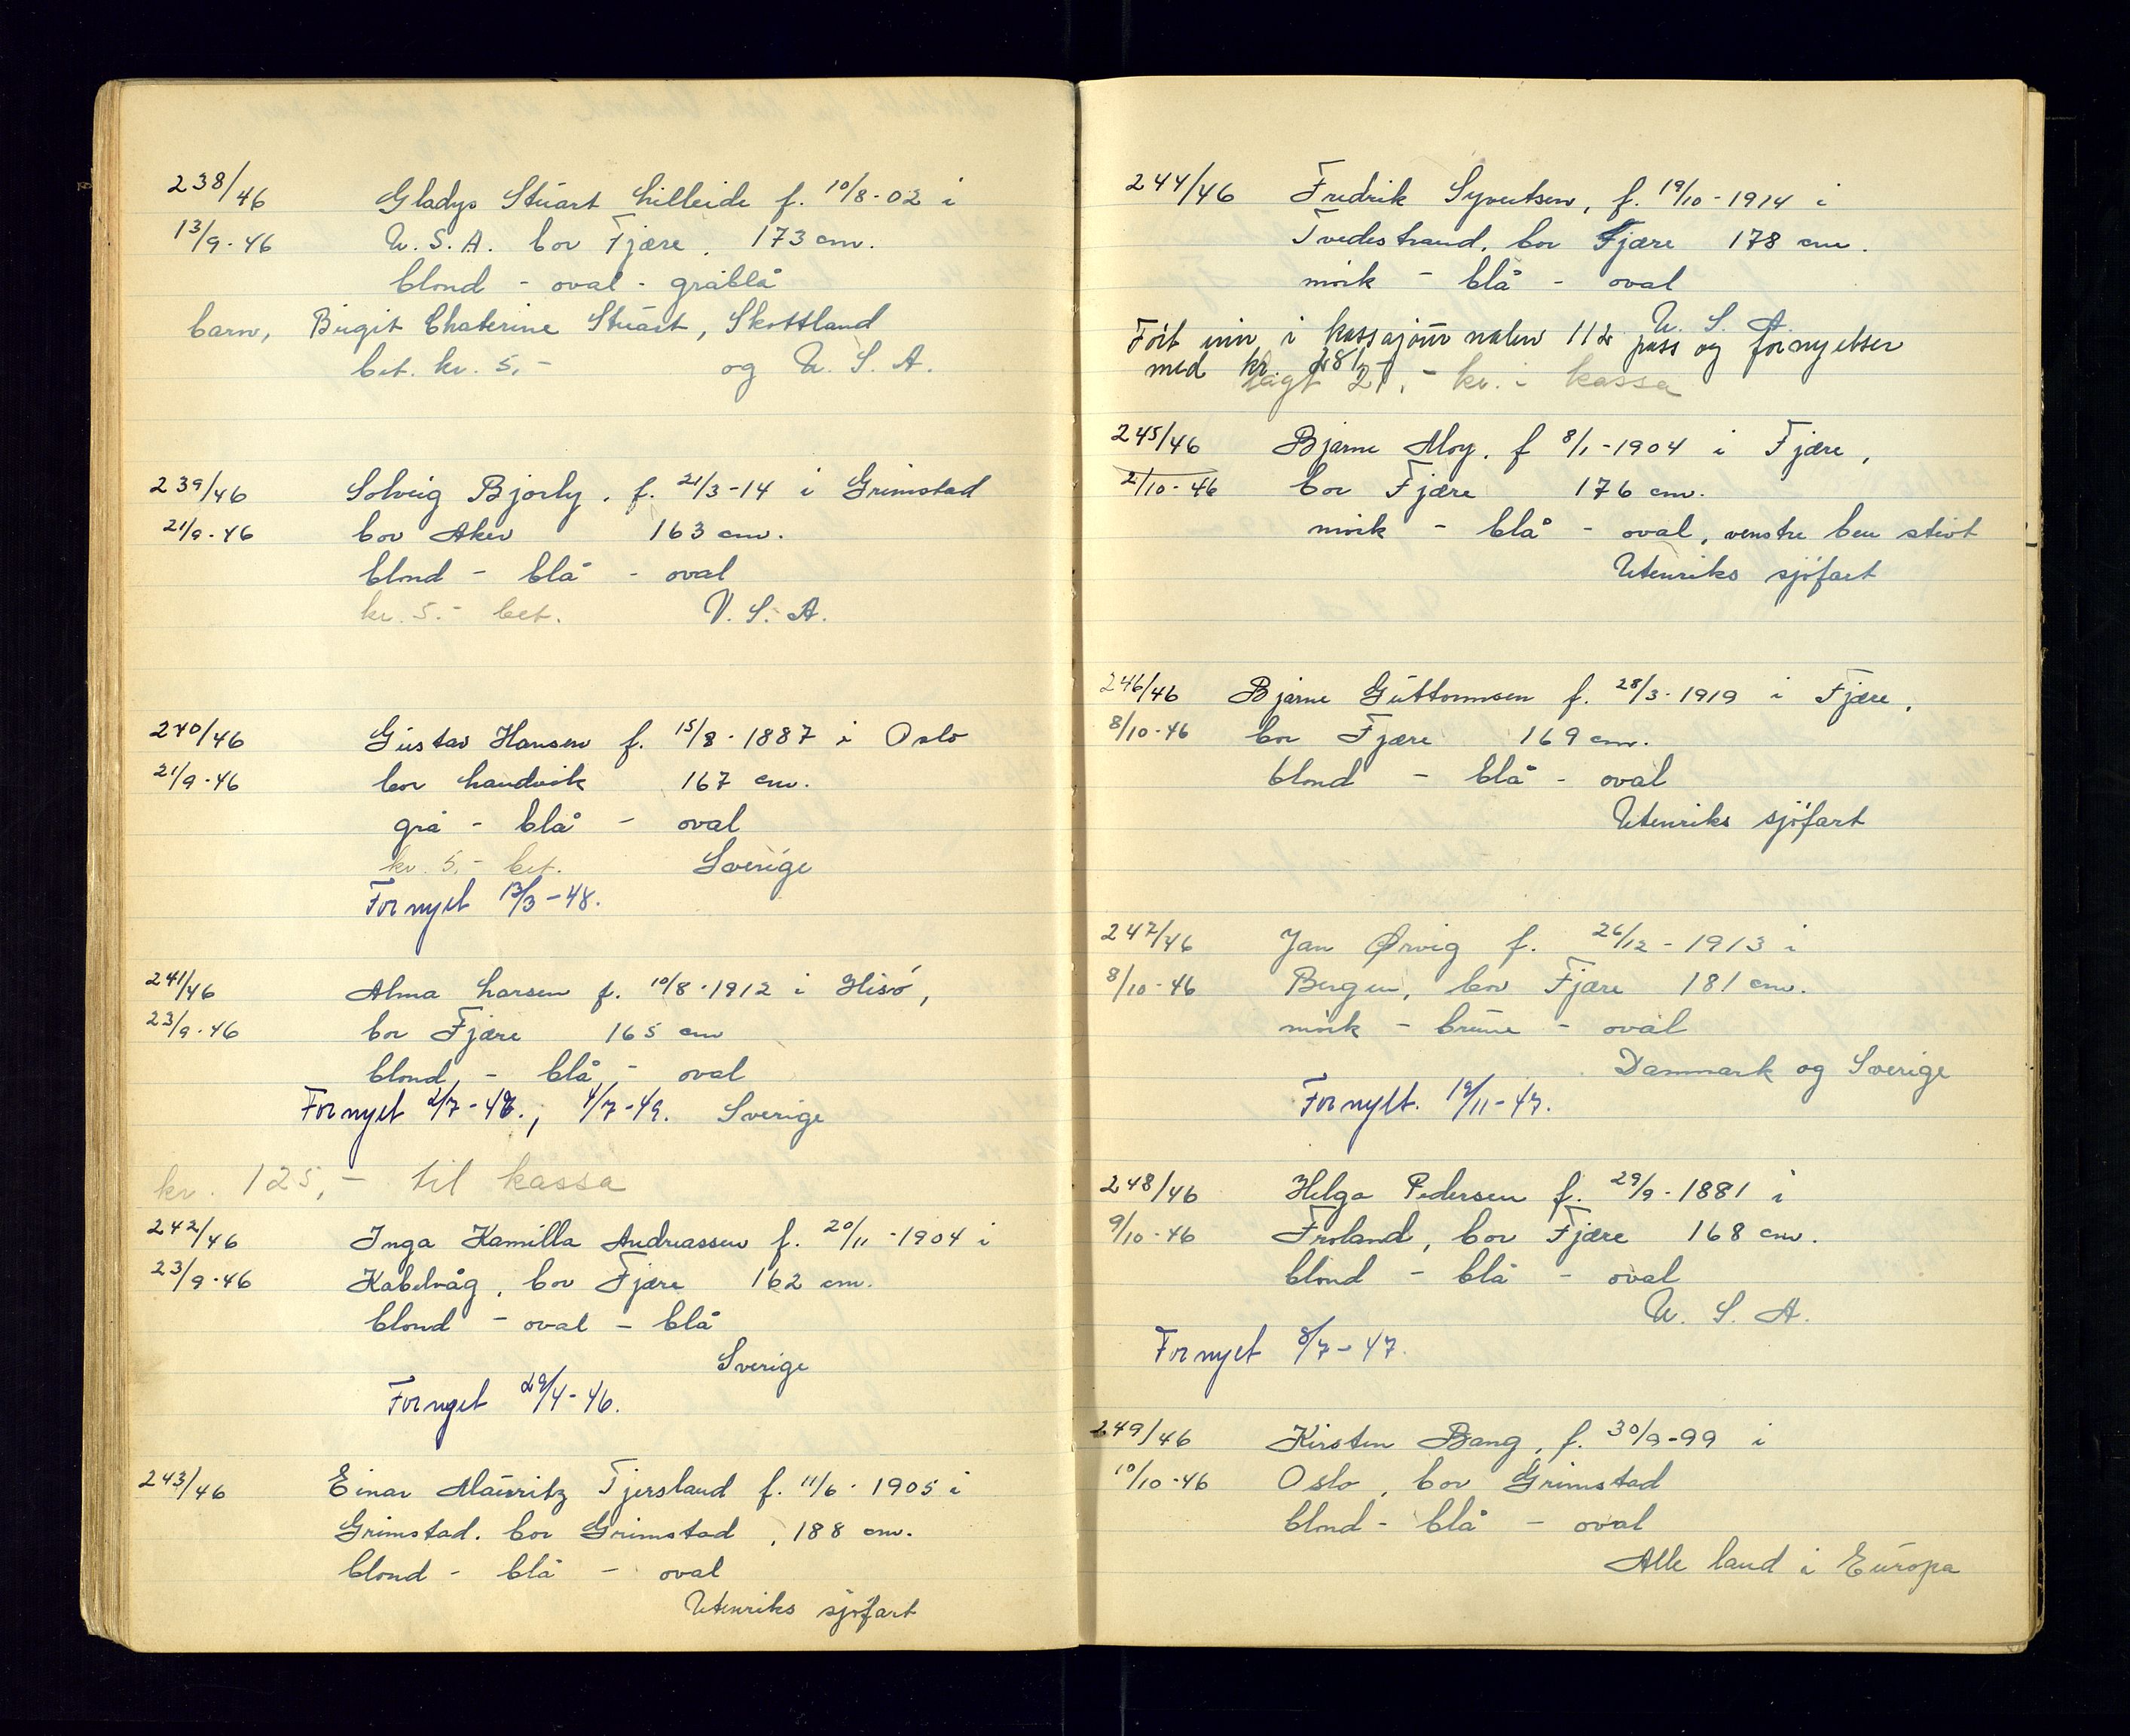 238/46 Gladys Stuart Lilleide f. 10/8-02 i
13/9-46 U.S.A. bor Fjære. 173 cm.
blond - oval - gråblå
barn, Birgit Chaterine Stuart, Skottland
bet. kr. 5,- og U.S.A.
239/46 Solveig Bjorly. f. 21/3-14 i Grimstad
21/9-46 bor Aker 163 cm.
blond - blå - oval
kr. 5.- bet. U.S.A.
240/46 Gustav Hansen f. 15/8-1887 i Oslo
21/9-46 bor Landvik 167 cm.
grå - blå - oval
kr. 5,- bet. Sverige
Fornyet 13/3-48.
241/46 Alma Larsen f. 10/8-1912 i Hisö,
23/9-46 bor Fjære 165 cm
blond - blå - oval
Fornyet 2/7-48., 4/7-49. Sverige
kr. 125,- til kassa
242/46 Inga Kamilla Andreassen f. 20/11-1904 i
23/9-46 Kabelvåg, bor Fjære 162 cm.
blond - oval - blå
Sverige
Fornyet 29/4-46.
243/46 Einar Mauritz Tjersland f. 11/6-1905 i
Grimstad. bor Grimstad, 188 cm.
blond - blå - oval
Utenriks sjöfart
244/46 Fredrik Syvertsen, f. 19/10-1914 i
Tvedestrand, bor Fjære 178 cm.
mörk - blå - oval
U. S. A.
Fört inn i kassajournalen 112 pass og fornyelser
med kr. 281,-
lagt 21,- kr. i kassa
245/46 Bjarne Moy. f 8/1-1904 i Fjære,
2/10-46 bor Fjære 176 cm.
mörk - blå - oval, venstre ben stivt
Utenriks sjöfart
246/46 Bjarne Guttormsen f. 28/3-1919 i Fjære,
8/10-46 bor Fjære 169 cm.
blond - blå - oval
Utenriks sjöfart
247/46 Jan Ørvig f. 26/12-1913 i
8/10-46 Bergen, bor Fjære 181 cm.
mörk - brune - oval
Danmark og Sverige
Fornylt. 19/11-47.
248/46 Helga Pedersen f. 29/9-1881 i
9/10-46 Froland, bor Fjære 168 cm.
blond - blå - oval
U. S. A.
Fornyet 8/7-47.
249/46 Kirsten Bang, f. 30/9-99 i
10/10-46 Oslo, bor Grimstad
blond - blå - oval
Alle land i Europa